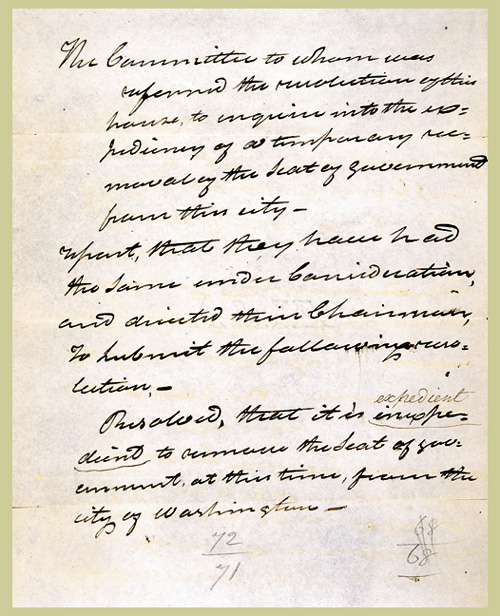 The Committee to whom was
referred the resolution of this
house, to enquire into the ex-
pediency of a temporary re-
moval of the Seat of government
from this city —
report, that they have had
the same under Consideration,
and directed their Chairman,
To submit the following reso-
lution. —
expedient
Resolved, that it is inexpe-
dient to remove the Seat of gov-
ernment, at this time, from the
city of Washington —
72
71
68
68